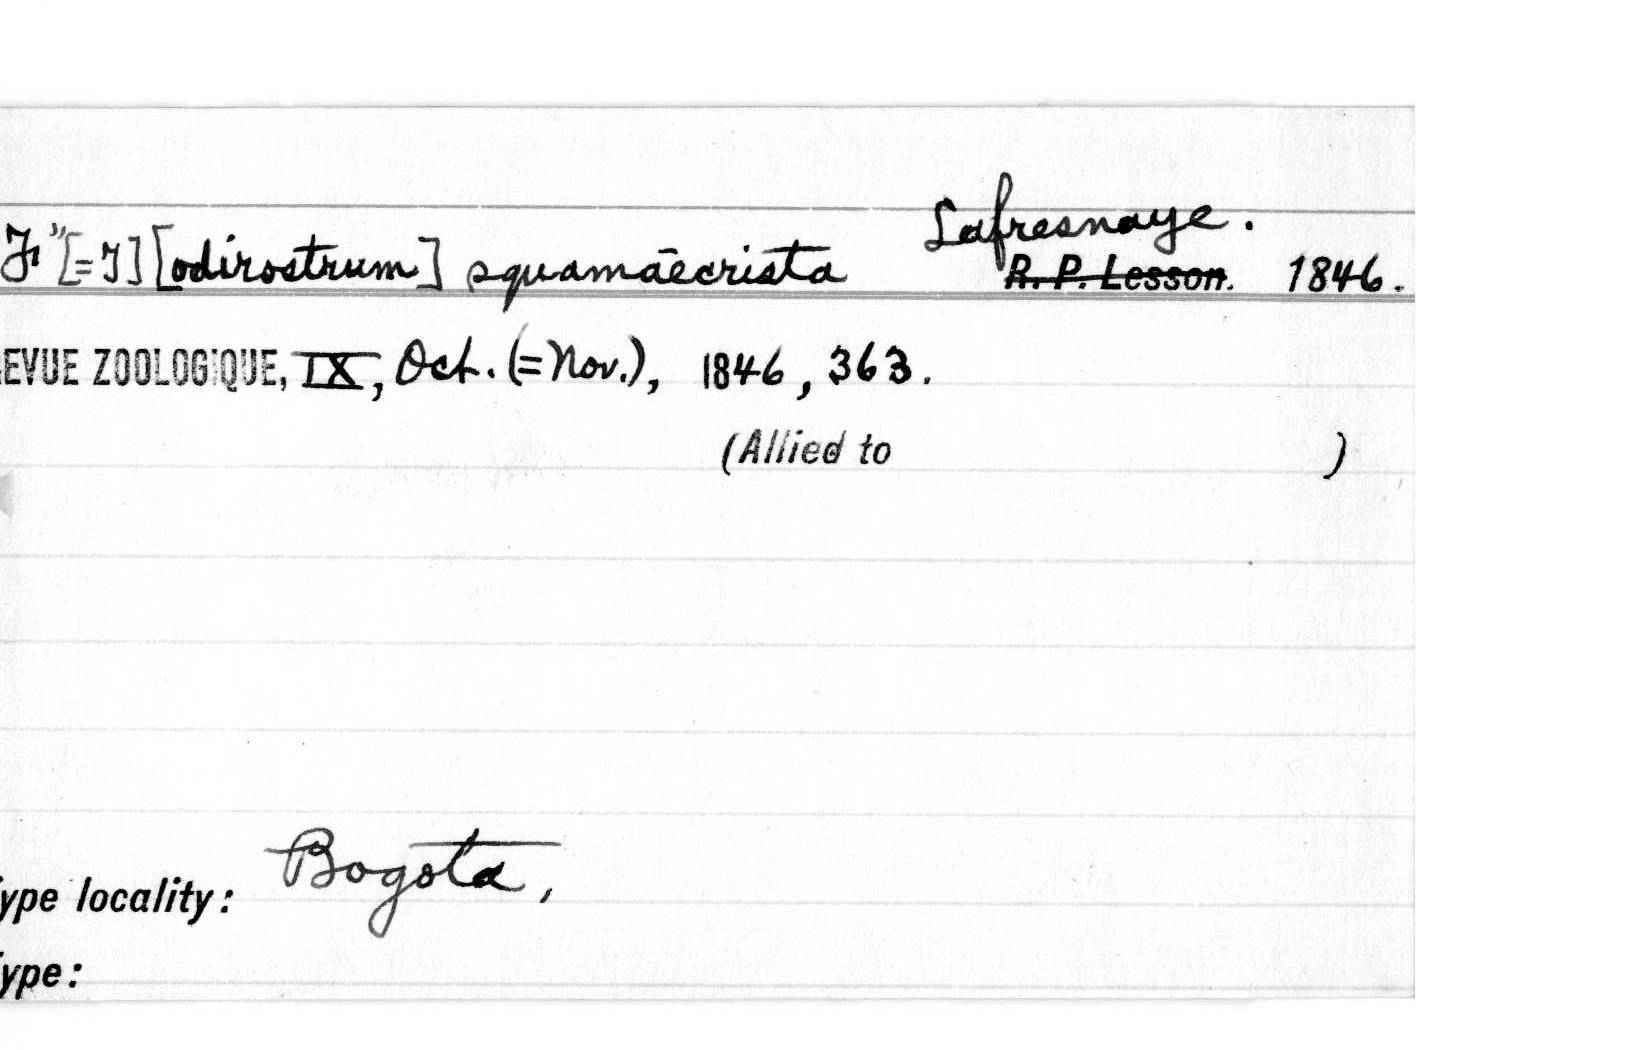 Lafresnaye.
T" [=T] [odirostrum] squamaecrista R. P. Lesson. 1846.
EVUE ZOOLOGIQUE, IX, Oct. (=Nov.), 1846, 363.
(Allied to )
ype locality: Bogota,
ype: